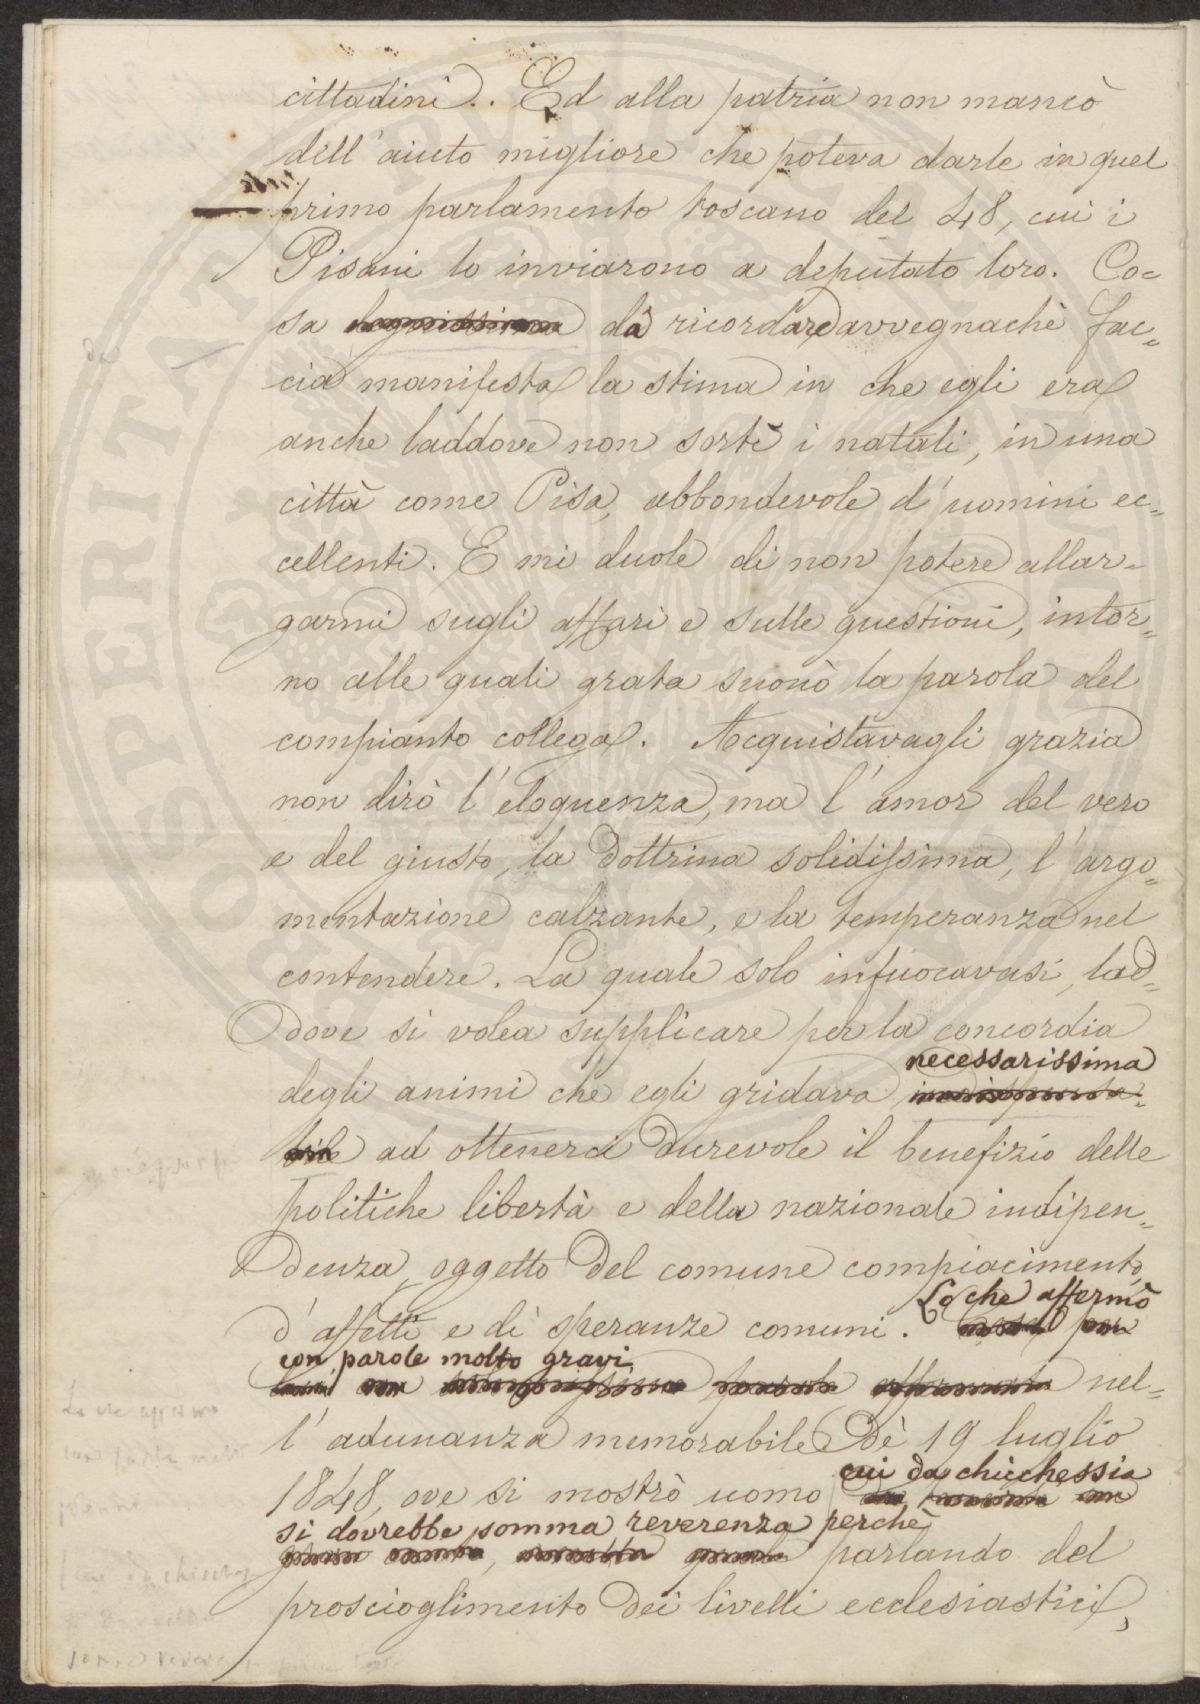 cittadini. Ed alla patria non mancò
dell'aiuto migliore che poteva darle in quel
primo parlamento toscano del 48, cui i
Pisani lo inviarono a deputato loro. Co-
sa da ricordare avvegnachè fac-
cia manifesta la stima in che egli era
anche laddove non sortì i natali, in una
città come Pisa, abbondevole d'uomini ec-
cellenti. E mi duole di non potere allar-
garmi sugli affari e sulle questioni, intor-
no alle quali grata suonò la parola del
compianto collega. Acquistavagli grazia
non dirò l'eloquenza, ma l'amor del vero
e del giusto, la dottrina solidissima, l'argo-
mentazione calzante, e la temperanza nel
contendere. La quale solo infuocavasi, lad-
dove si volea supplicare per la concordia
necessarissima
degli animi che egli gridava
ad ottenerci durevole il benefizio delle
politiche libertà e della nazionale indipen-
denza, oggetto del comune compiacimento,
Lo che affermò
d'affetti e di speranze comuni.
con parole molto gravi
nel-
l'adunanza memorabile de' 19 luglio
cui da chicchessia
1848, ove si mostrò uomo
si dovrebbe somma reverenza perchè
parlando del
proscioglimento dei livelli ecclesiastici,